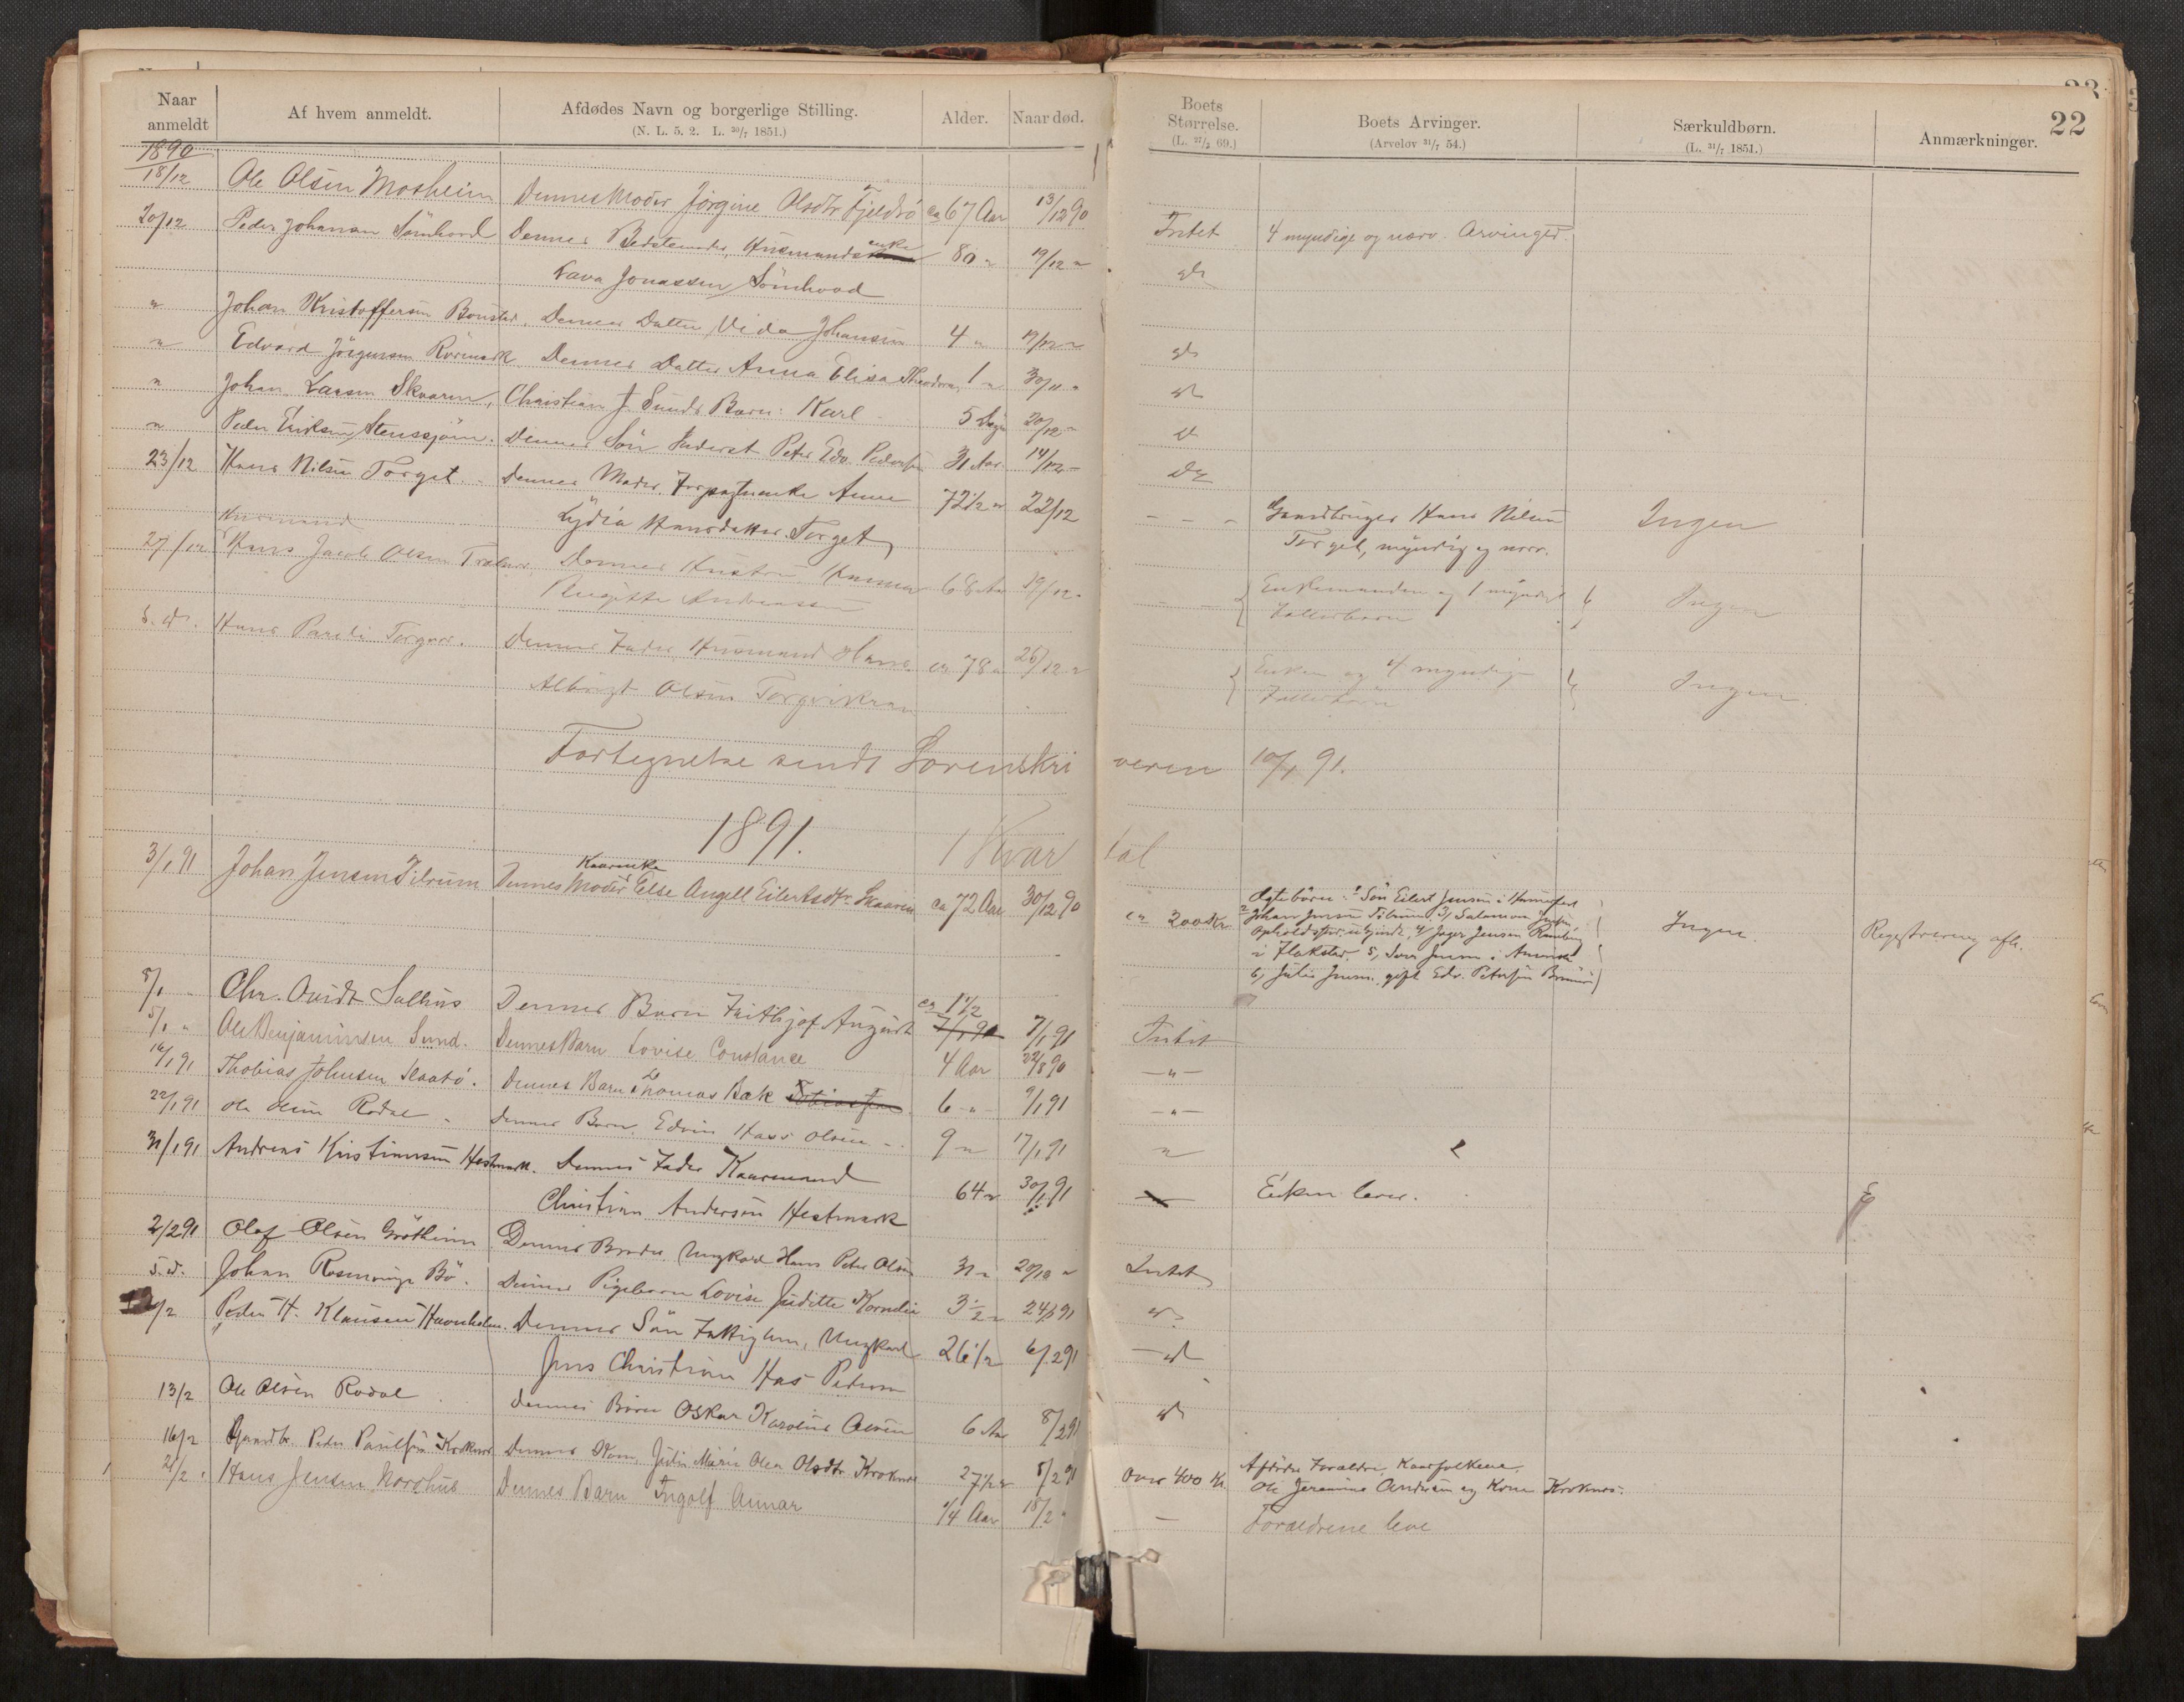 22
Naar anmeldt
Af hvem anmeldt.
Afdødes Navn og borgerlige Stilling.
(N. L. 5. 2. L. 30/7 1851.)
Alder.
Naar død.
Boets Størrelse.
(L. 27/2 69.)
Boets Arvinger.
(Arvelov 31/7 54.)
Særkuldbørn.
(L. 31/7 1851.)
Anmærkninger.
1890
18/12 Ole Olsen Mosheim Dennes Moder Jørgine Olsdtr Fjeldsø ca 67 Aar 13/12 90 Intet 4 myndige og nærv. Arvinger.
20/12 Peder Johansen Sømhovd Dennes Bedstemoder, Husmandsenke 80 " 19/12 " do
Lava Jonassen Sømhovd
" Johan Kristoffersen Dennes Datter Vida Johansen 4 " 19/12 " do
" Edvard Jörgensen Dennes Datter Anna Elisa 1 " 30/11 " do
" Johan Larsen Skvaren, Christian J. Sunds Barn: Karl 5 Dage 20/12 " do
" Peder Eriksen Dennes Søn Peter Edv. Pedersen 31 Aar 14/12 " do
23/12 Hans Nilsen Torget. Dennes Moder, Anne 72 1/2 " 22/12 - - - Gaardbruger Hans Nilsen Ingen
Lydia Hansdatter Torget Torget, myndig og nærv.
Husmand
27/12 Hans Jacob Olsen Dennes Hustru Hanna 68 Aar 19/12 " Enkemanden og 1 myndigt Ingen
Birgitte Andreassen Fællesbarn
s. d. Hans Torgnes. Dennes Fader, Husmand Hans ca 78 " 26/12 " Enken og 4 myndige Ingen
Albrigt Olsen Torgvikran Fællesbørn
Fortegnelse sendt Sorenskriveren 10/1 91.
1891. 1 Kvartal
Kaarenke
3/1 91 Johan Jensen Tilrum Dennes Moder Else Angell Eilertsdtr. Skaaren ca 72 Aar 30/12 90 ca 200 Kr. Ægtebörn: 1 Søn Eilert Jensen i Hammerfest Ingen. Registrering afh.
2 Johan Jensen Tilrum 3, Salamon Jensen
Opholdssted ubekjendt, 4, Jensen
i Flakstad, 5, Jensen i
6, Julie Jensen, gift Edv. Petersen
8/1 " Chr. Avidt Salhus Dennes Barn Frithjof August ca 1 1/2 7/1 91 Intet
5/1 " Ole Benjaminsen Sund. Dennes Barn Lovise Constance 4 Aar 22/8 90 - " -
16/1 91 Thobias Johnsen Dennes Barn Thomas Bek 6 " 9/1 91 - " -
22/1 91 Ole Olsen Rodal Dennes Barn Edvin Hass Olsen 9 " 17/1 91 "
31/1 91 Andreas Kristiansen Hestmark. Dennes Fader Kaarmand 64 " 30/1 91 Enken lever.
Christian Andersen Hestmark
2/2 91 Olaf Olsen Grøttheim Dennes Broder, Ungkarl Hans Peter Olsen 31 " 20/10 " Intet
s. d. Johan Rosmvinge Bö. Dennes Pigebarn Lovise Juditte Kornelia 3 1/2 " 24/1 91 do
/2 Peder H. Klausen Havnholm. Dennes Søn Fattiglem, Ungkarl 26 1/2 6/2 91 - do
Jens Christian Has Pedersen
13/2 Ole Olsen Rodal Dennes Barn Oskar Karolius Olsen 6 Aar 8/2 91 do
16/2 Gaardbr. Peder Paulsen Kroknes Dennes Kone, Julie Marie Olea Olsdtr. Kroknes 27 1/2 " 5/2 91 Over 400 Kr. Afdødes Forældre, Kaarfolkene,
Ole Jeremias Andersen og Kone Kroknes.
21/2 " Hans Jensen Nordhus Dennes Barn Ingolf Annar 1/4 Aar 15/2 " - Forældrene leve